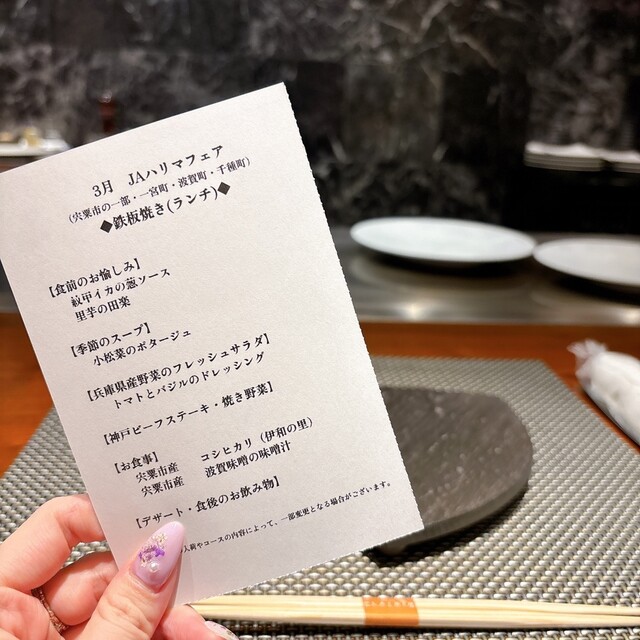 3月 JAハリマフェア
(宍粟市の一部・一宮町・波賀町・千種町)
◆鉄板焼き(ランチ)◆
【食前のお愉しみ】
紋甲イカの葱ソース
里芋の田楽
【季節のスープ】
小松菜のポタージュ
【兵庫県産野菜のフレッシュサラダ】
トマトとバジルのドレッシング
【神戸ビーフステーキ・焼き野菜】
【お食事】
宍粟市産 コシヒカリ(伊和の里)
宍粟市産 波賀味噌の味噌汁
【デザート・食後のお飲み物】
入荷やコースの内容によって、一部変更となる場合がございます。